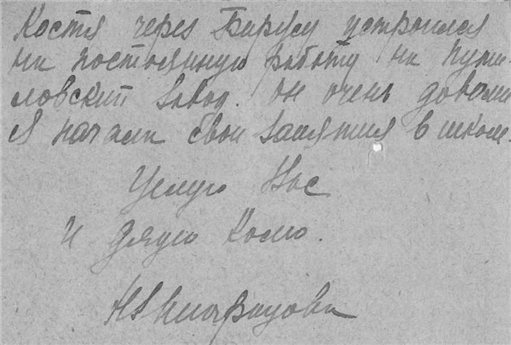 Костя через Биржу устроился
на постоянную работу на Пути-
ловский завод. он очень доволен
Я начала свои занятия в школе.
Целую Вас
и дядю Колю.